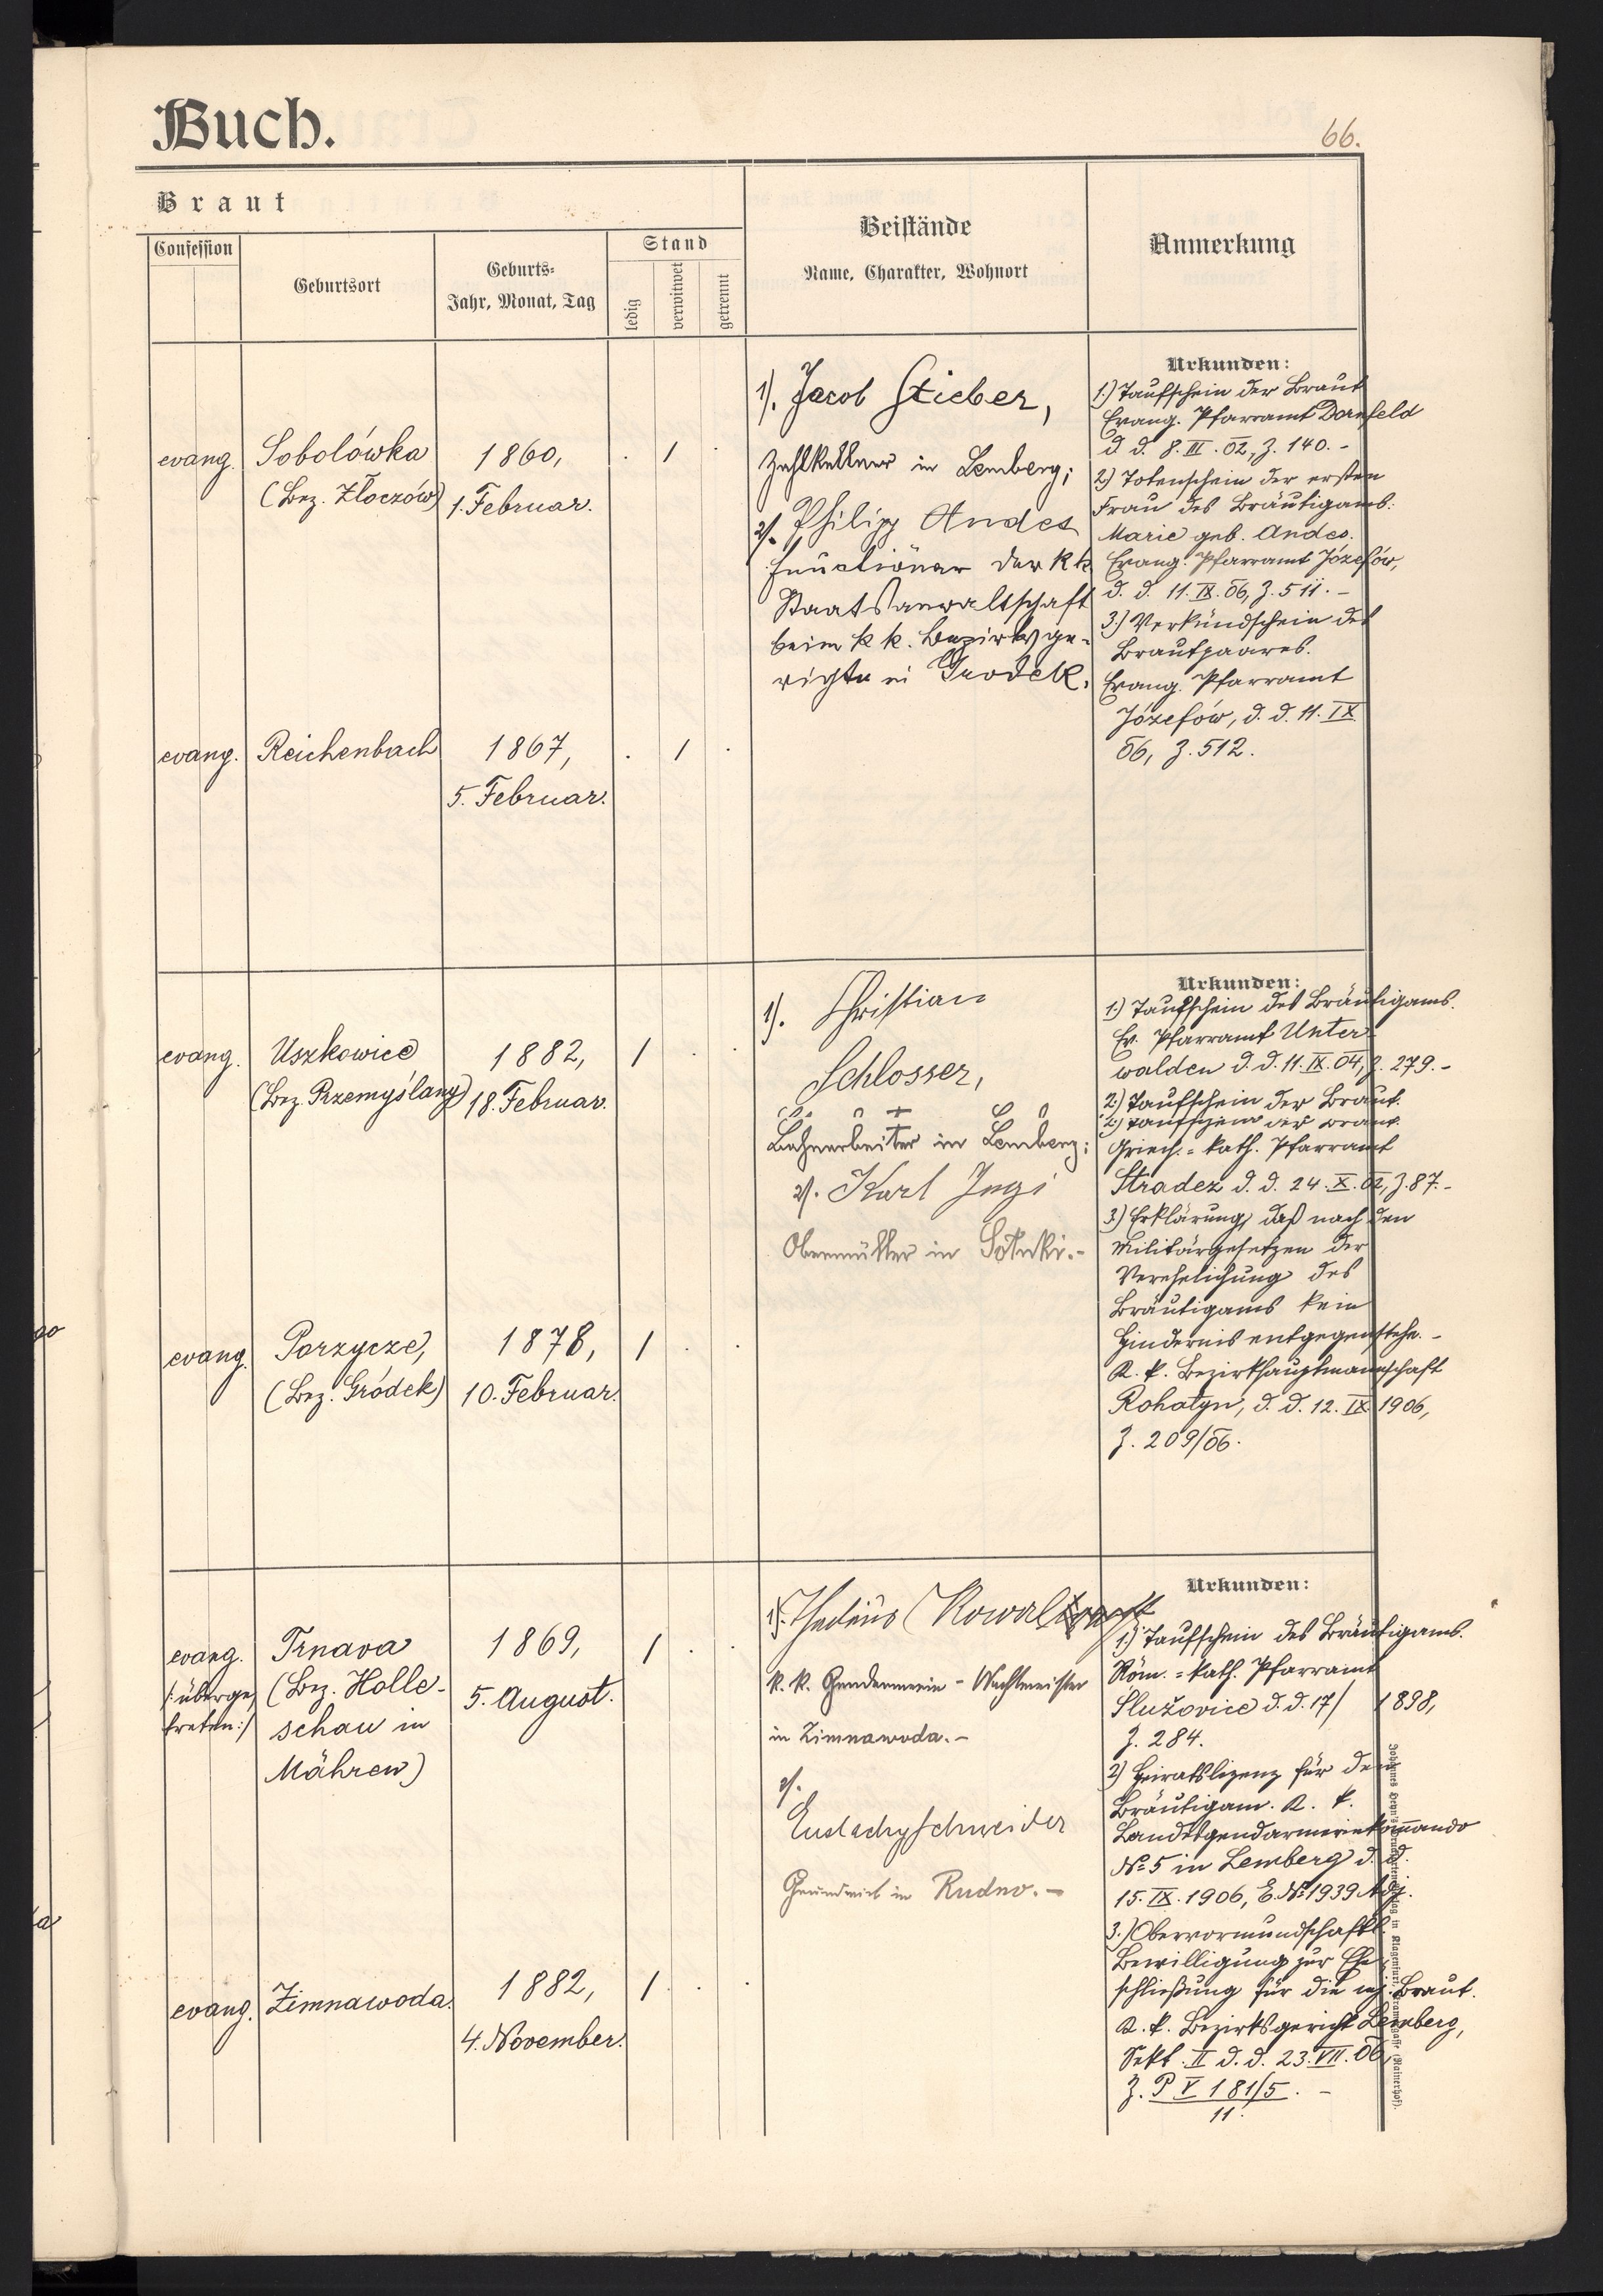 Buch.
66.
Braut
Confession
Geburtsort
Geburts-
Jahr, Monat, Tag
Stand
ledig
verwitwet
getrennt
Beistände
Name, Charakter, Wohnort
Anmerkung
evang.
Sobolówka
(Bez. Złoczów)
1860,
1. Februar.
. 1 .
1). Jacob Stieber,
Zahlkellner in Lemberg;
2). Philipp Andes
Functionär der k k
Staatsanwaltschaft
beim k k. Bezirksge-
richte in Grodek.
Urkunden:
1.) Taufschein der Braut
Evang. Pfarramt Dornfeld
d. d. 8. III. 02, Z. 140. -
2.) Totenschein der ersten
Frau des Bräutigams:
Marie geb. Andes.
Evang. Pfarramt Józefów,
d. d. 11. IX. 06, Z. 511. -
3.) Verkündschein des
Brautpaares.
Evang. Pfarramt
Józefów, d. d. 11. IX
06, Z. 512.
evang.
Reichenbach
1867,
5. Februar.
. 1 .
evang.
Uszkowice
(Bez. Przemyślany)
1882,
18. Februar.
1 . .
1). Christian
Schlosser,
Bahnarbeiter in Lemberg;
2). Karl
Obermüller in
Urkunden:
1.) Taufschein des Bräutigams.
Ev. Pfarramt Unter-
walden d. d. 11. IX. 04, Z. 279. -
2.) Taufschein der Braut.
2.) Taufschein der Braut.
Griech.-kath. Pfarramt
Stradez d. d. 24. X. 02, Z. 87. -
3.) Erklärung, daß nach den
Militärgesetzen der
Verehelichung des
Bräutigams kein
Hindernis entgegenstehe. -
K. k. Bezirkshauptmannschaft
Rohatyn, d. d. 12. IX. 1906,
Z. 209/06.
evang.
Porzycze,
(Bez. Gródek)
1878,
10. Februar.
1 . .
evang.
/: überge-
treten :/
Trnava
(Bez. Holle-
schau in
Mähren)
1869,
5. August.
1 . .
1). Thedeus
k. k. Gendarmerie-Wachtmeister
in Zimnawoda. -
2).
Eustachy Schneider
Grundwirt in Rudno. -
Urkunden:
1.) Taufschein des Bräutigams.
Röm.-kath. Pfarramt
Služovice d. d. 17/ 1898,
Z. 284.
2.) Heiratslizenz für den
Bräutigam. K. k.
Landesgendarmeriekommando
No 5 in Lemberg d. d.
15. IX. 1906, E. No 1939 Adj.
3.) Obervormundschaftl.
Bewilligung zur Ehe-
schließung für die mj. Braut.
K. k. Bezirksgericht Lemberg,
Sekt. II d. d. 23. VII. 06,
Z. P V 181/5. -
11.
evang.
Zimnawoda.
1882,
4. November.
1 . .